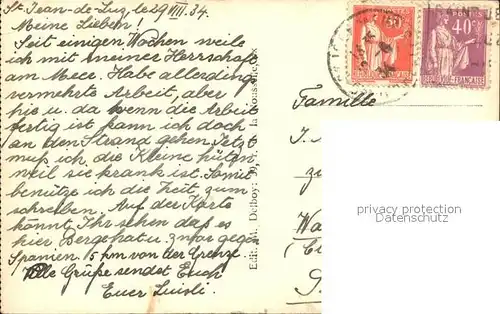 St. Jean-de Luz, le 29 VIII. 34.
Meine Lieben!
Seit einigen Wochen weile
ich mit meiner Herrschaft
am Meer. Habe allerdings
vermehrte Arbeit, aber
hie u. da wenn die Arbeit
fertig ist kann ich doch
an den Strand gehen. Jetzt
muß ich die Kleine hüten
weil sie krank ist. Somit
benütze ich die Zeit zum
schreiben. Auf der Karte
könnt Ihr sehen daß es
hier Berge hat u. zwar gegen
Spanien. 15 km von der Grenze
Viele Grüße sendet Euch
Euer Luisli.
Edit. M. Delboy
POSTES
40c
REPUBLIQUE FRANÇAISE
Familie
J.
zu
Wa
privacy protection
oldthing.de